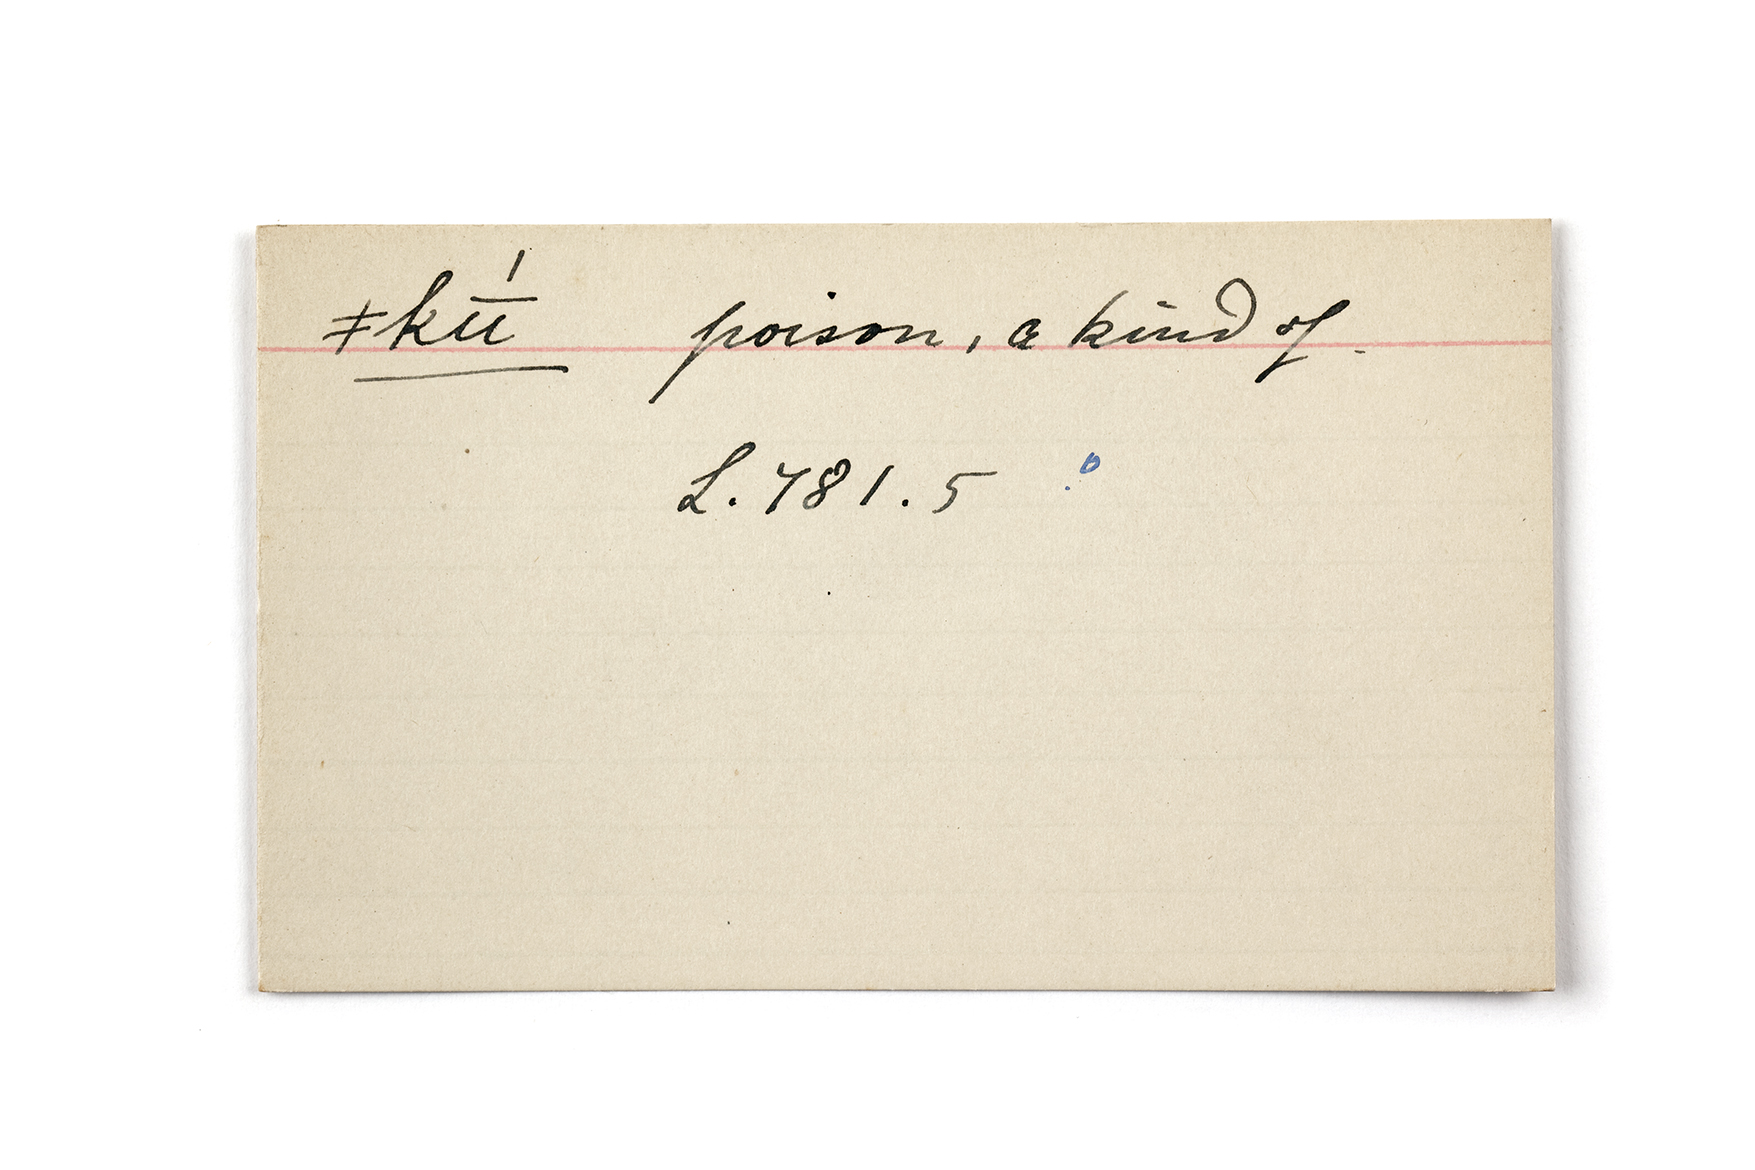 ǂkı̄ı̄́ poison, a kind of.
L. 781.5